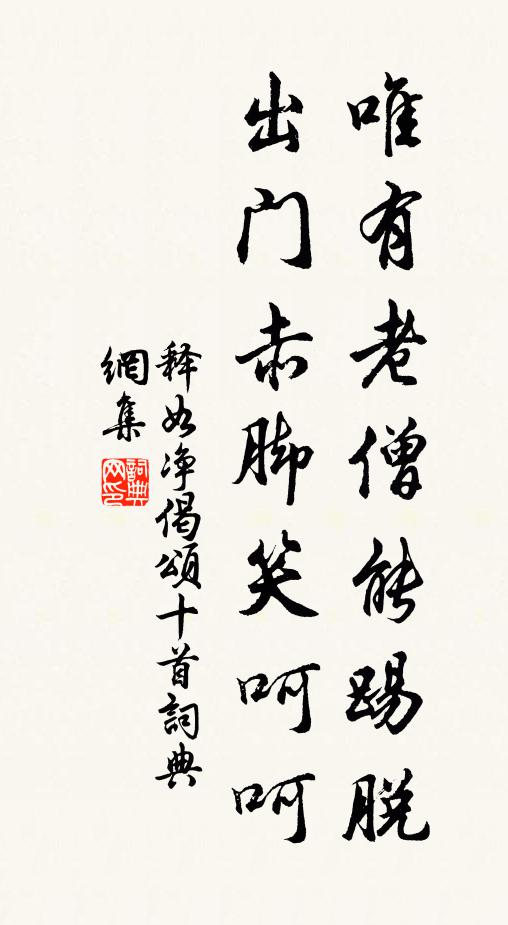 唯有老僧能踢脱
出门赤脚笑呵呵
释如净偈颂十首詞典
網集
詞典
网印